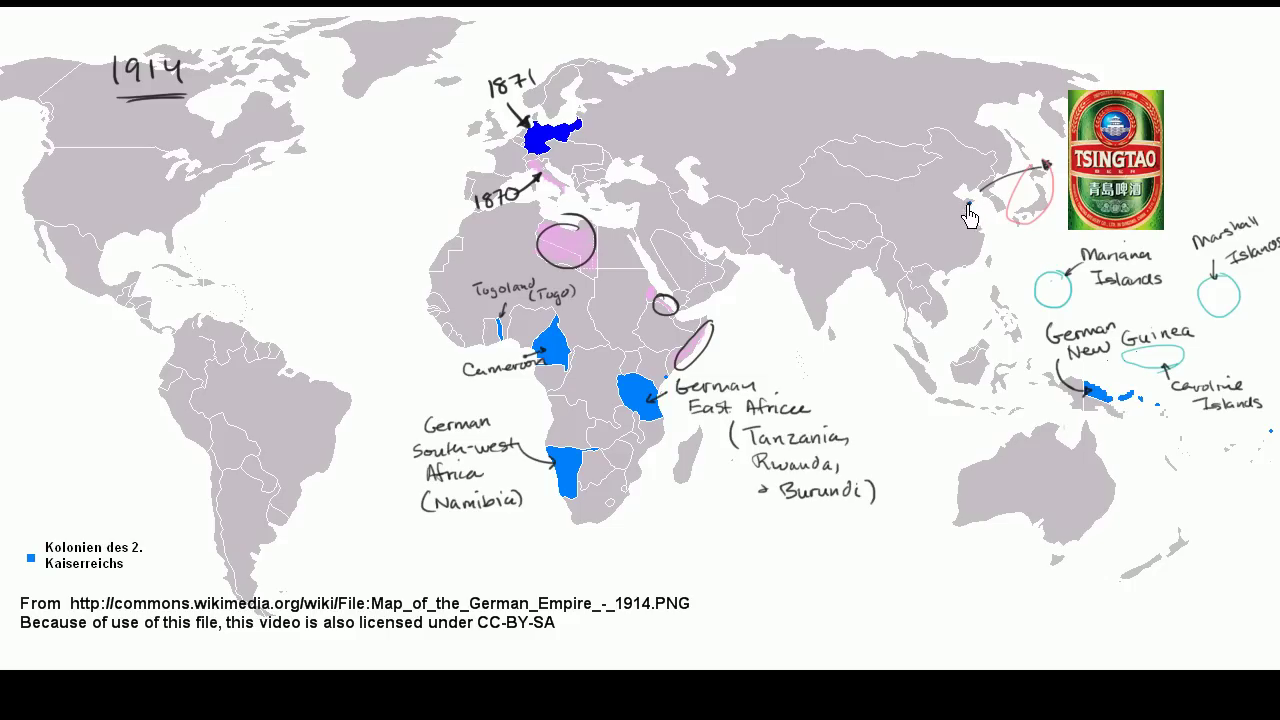 1914
1871
1870
TSINGTAO
BEER
青島啤酒
Mariana
Islands
Marshall
Islands
German
New Guinea
Caroline
Islands
Togoland
(Togo)
Cameroon
German
East Africa
(Tanzania,
Rwanda,
+ Burundi)
German
South-west
Africa
(Namibia)
Kolonien des 2.
Kaiserreichs
From http://commons.wikimedia.org/wiki/File:Map_of_the_German_Empire_-_1914.PNG
Because of use of this file, this video is also licensed under CC-BY-SA